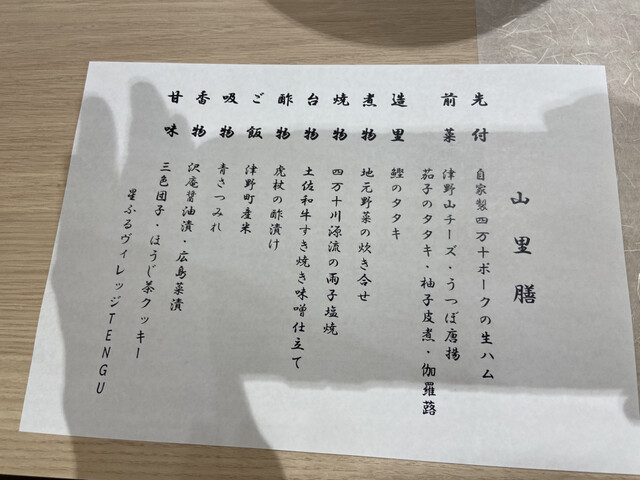 山里膳
先付 自家製四万十ポークの生ハム
前菜 津野山チーズ・うつぼ唐揚
茄子のタタキ・柚子皮煮・伽羅蕗
造里 鰹のタタキ
煮物 地元野菜の炊き合せ
焼物 四万十川源流の雨子塩焼
台物 土佐和牛すき焼き味噌仕立て
酢物 虎杖の酢漬け
ご飯 津野町産米
吸物 青さつみれ
香物 沢庵醤油漬・広島菜漬
甘味 三色団子・ほうじ茶クッキー
星ふるヴィレッジTENGU